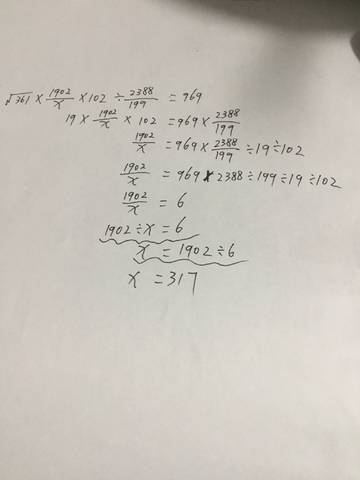 √361 × 1902/x × 102 ÷ 2388/199 = 969
19 × 1902/x × 102 = 969 × 2388/199
1902/x = 969 × 2388/199 ÷ 19 ÷ 102
1902/x = 969 × 2388 ÷ 199 ÷ 19 ÷ 102
1902/x = 6
1902 ÷ x = 6
x = 1902 ÷ 6
x = 317